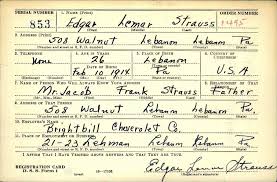 SERIAL NUMBER 1. NAME (Print) ORDER NUMBER
853 Edgar Lemar Strauss
2. ADDRESS (Print)
508 Walnut Lebanon Lebanon Pa
3. TELEPHONE 4. AGE IN YEARS 5. PLACE OF BIRTH 6. COUNTRY OF CITIZENSHIP
None 26 Lebanon
DATE OF BIRTH
Feb 10 1914 Pa U.S.A
7. NAME OF PERSON WHO WILL ALWAYS KNOW YOUR ADDRESS 8. RELATIONSHIP OF THAT PERSON
Mr. Jacob Frank Strauss Father
9. ADDRESS OF THAT PERSON
508 Walnut Lebanon Lebanon Pa
10. EMPLOYER'S NAME
Brightbill Chevrolet Co.
11. PLACE OF EMPLOYMENT OR BUSINESS
21-23 Lehman Lebanon Lebanon Pa
I AFFIRM THAT I HAVE VERIFIED ABOVE ANSWERS AND THAT THEY ARE TRUE.
REGISTRATION CARD
D. S. S. Form 1
Edgar Lemar Strauss